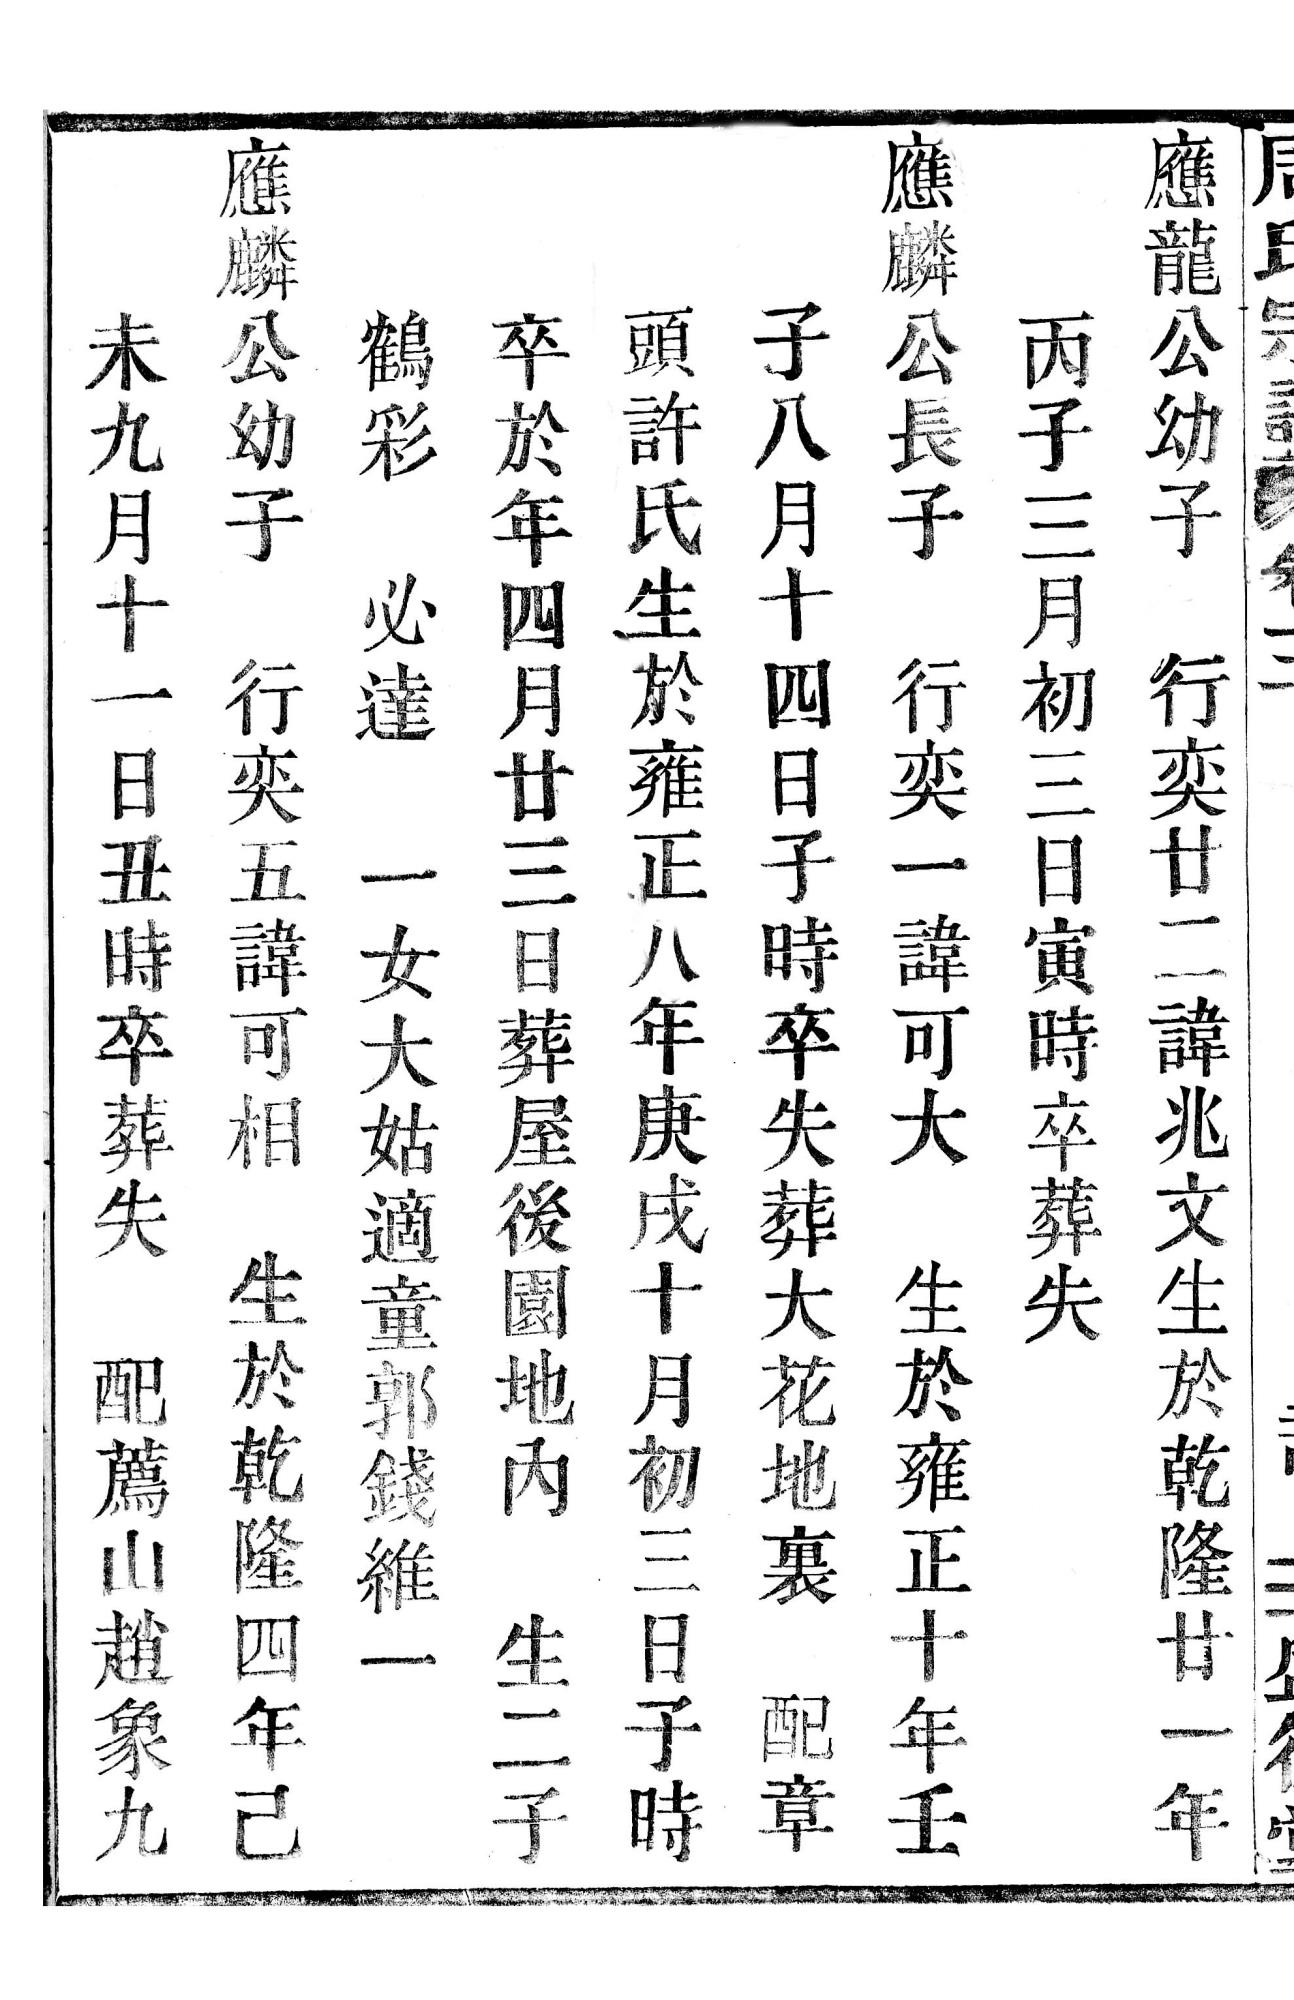 周氏宗譜 卷二
應龍公幼子 行奕廿二諱兆文生於乾隆廿一年
丙子三月初三日寅時卒葬失
應麟公長子 行奕一諱可大 生於雍正十年壬
子八月十四日子時卒失葬大花地裏 配章
頭許氏生於雍正八年庚戌十月初三日子時
卒於年四月廿三日葬屋後園地內 生二子
鶴彩 必達 一女大姑適童郭錢維一
應麟公幼子 行奕五諱可相 生於乾隆四年己
未九月十一日丑時卒葬失 配薦山趙象九